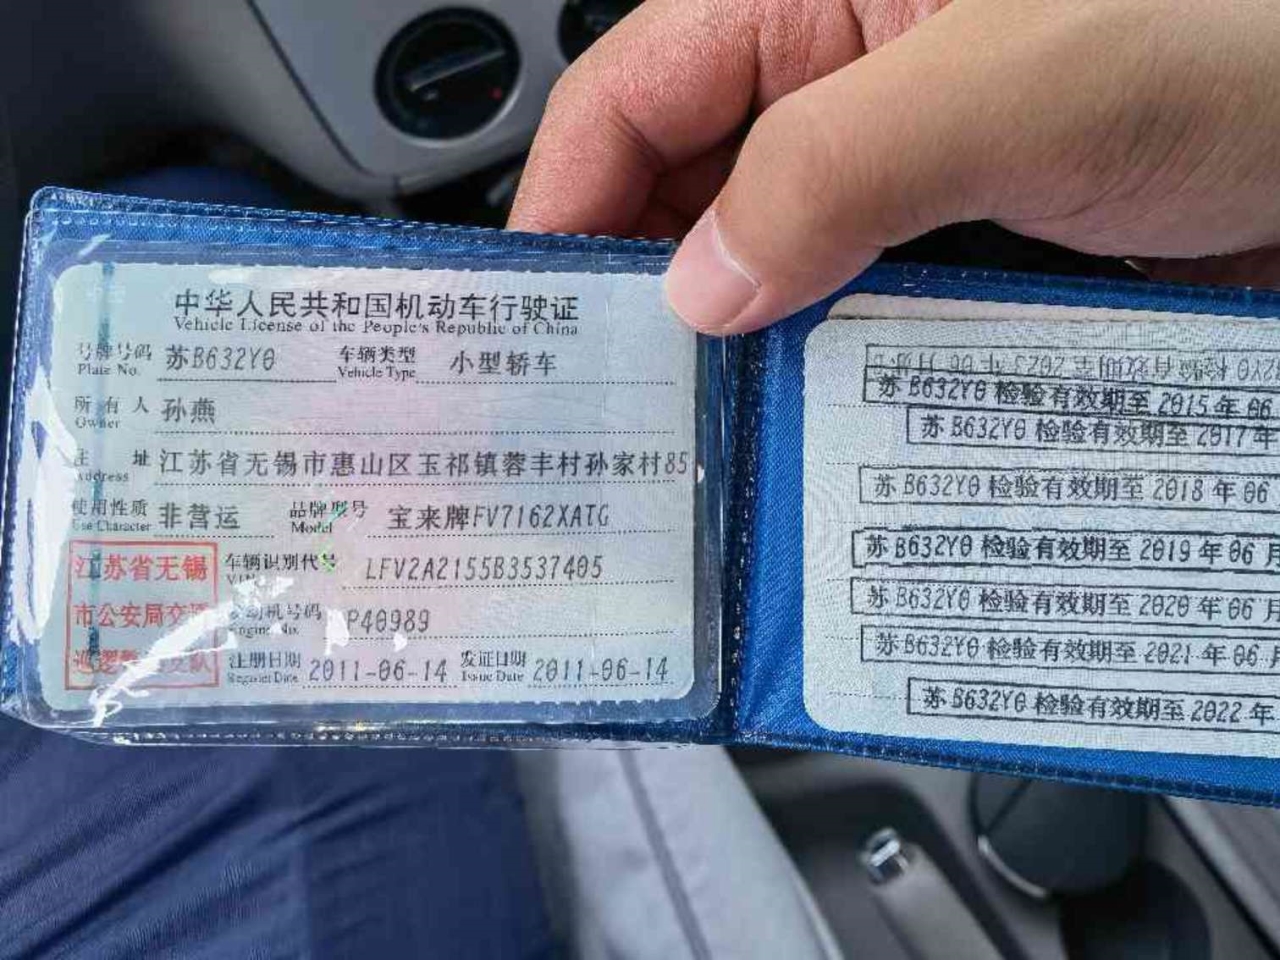 中华人民共和国机动车行驶证
Vehicle License of the People's Republic of China
号牌号码 苏B632Y0 车辆类型 小型轿车
Plate No. Vehicle Type
所有人 孙燕
Owner
住址 江苏省无锡市惠山区玉祁镇蓉丰村孙家村85
Address
使用性质 非营运 品牌型号 宝来牌FV7162XATG
Use Character Model
车辆识别代号 LFV2A2155B3537405
VIN
发动机号码 P40989
Engine No.
注册日期 2011-06-14 发证日期 2011-06-14
Register Date Issue Date
江苏省无锡
市公安局交通
巡逻警察支队
检验有效期至 2023 年 06 月苏B
苏B632Y0 检验有效期至 2015 年 06
苏B632Y0 检验有效期至 2017 年
苏B632Y0 检验有效期至 2018 年 06
苏B632Y0 检验有效期至 2019 年 06 月
苏B632Y0 检验有效期至 2020 年 06 月
苏B632Y0 检验有效期至 2021 年 06 月
苏B632Y0 检验有效期至 2022 年